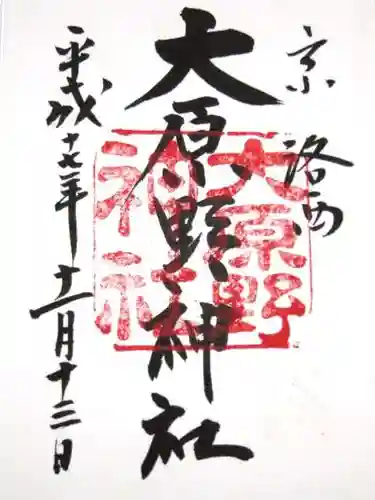 京 洛西
大原野神社
大原野
神社
平成十七年十一月十三日